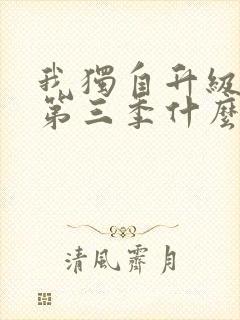 我獨自升級
第三季什麼
清風霽月